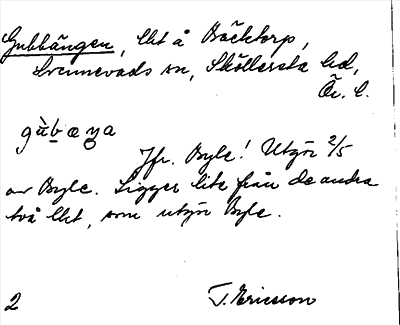 Gubbängen, lht å Bäcktorp,
Svennevads sn, Sköllersta hd,
Ör. l.
gùb̲æŋa
Jfr. Byle! Utgör 2/5
av Byle. Ligger lite från de andra
två lht, som utgör Byle.
2 T. Ericsson